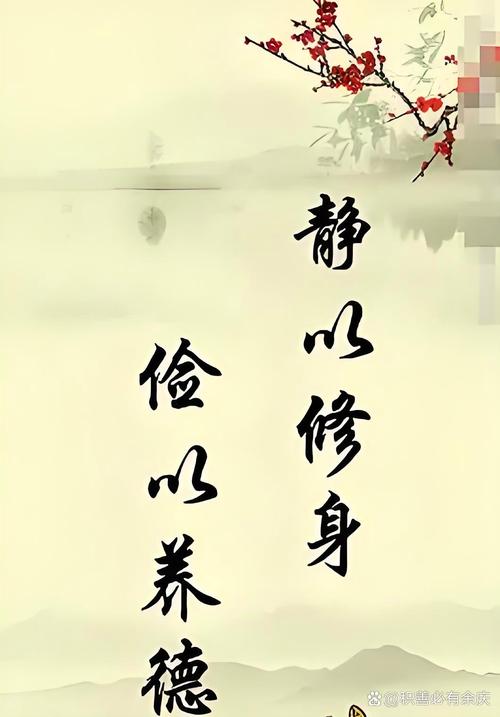 静以修身
俭以养德
积善必有余庆